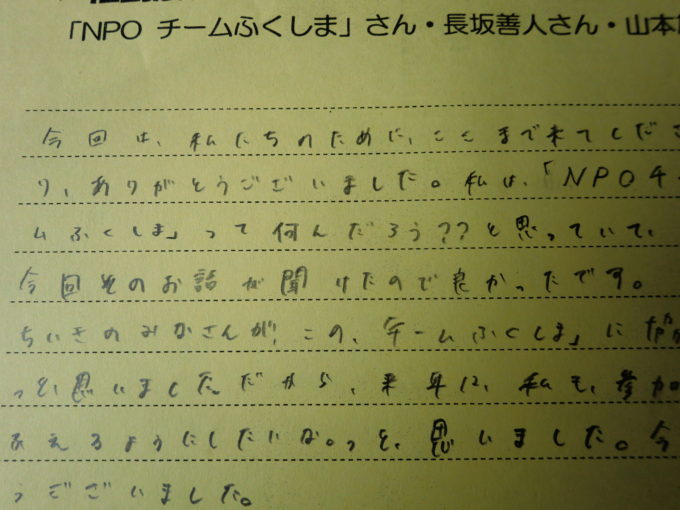 「NPO チームふくしま」さん・長坂善人さん・山本
今回は、私たちのために、ここまで来てくださ
り、ありがとうございました。私は、「NPOチ
ムふくしま」って何んだろう??と思っていて、
今回そのお話が聞けたので良かったです。
ちいきのみなさんが、この、チームふくしま」に
っと、思いましただから、来年は、私も、参加
えるようにしたいな。っと、思いました。今
うございました。